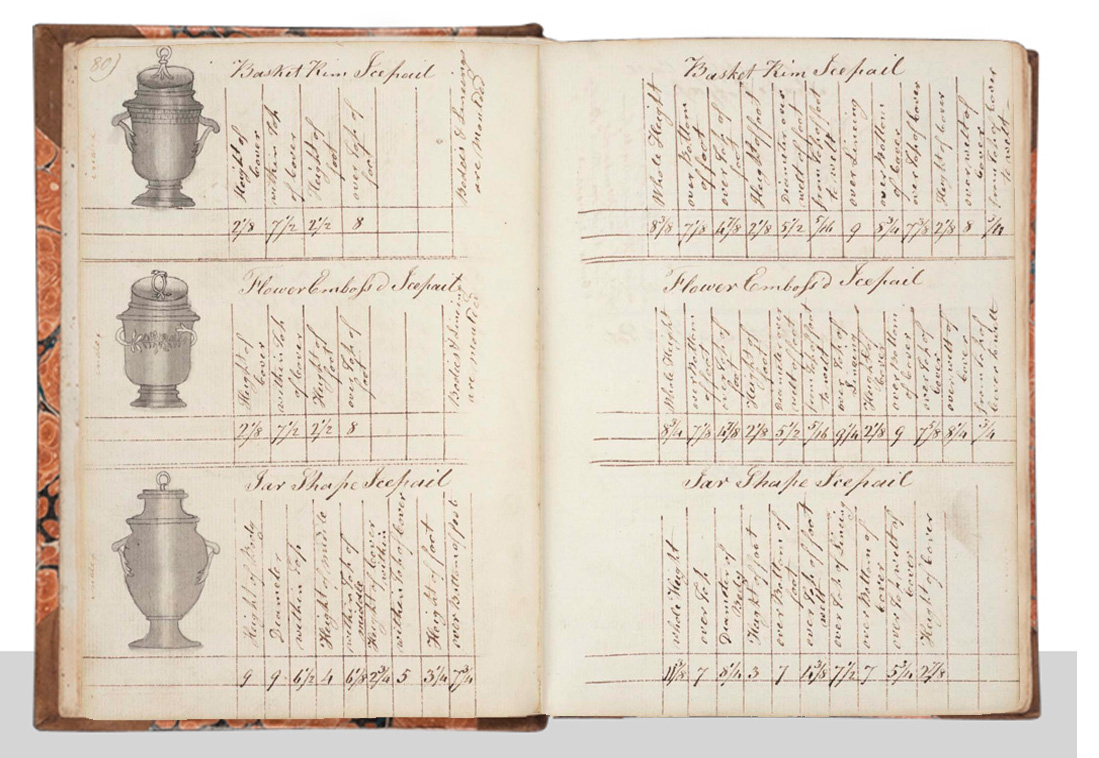 80)
Basket Rim Icepail
Height of Cover
within Top of Cover
Height of foot
over Top of foot
Bodies & Lineing are moulded
2 1/8 7 1/2 2 1/2 8
Flower Emboss'd Icepail
Height of Cover
within Top of Cover
Height of foot
over Top of foot
Bodies & Lineing are moulded
2 1/8 7 1/2 2 1/2 8
Jar Shape Icepail
Height of Body
Diameter
within Top
Height of middle
within Top of middle
Height of Cover within
within Top of Cover
Height of foot
over Bottom of foot
9 9 6 1/2 4 6 1/8 2 3/4 5 3 1/4 7 3/4
Basket Rim Icepail
Whole Height
over Bottom of foot
over Top of foot
Height of foot
Diameter over welt of foot
from Top of foot to welt
over Lineing
over Bottom of Cover
over Top of Cover
Height of Cover
over welt of Cover
from Top of Cover to welt
8 3/8 7 1/8 2 1/8 5 1/2 5/16 9 8 3/4 7 3/8 2 1/8 8
Flower Emboss'd Icepail
Whole Height
over Bottom of foot
over Top of foot
Height of foot
Diameter over welt of foot
from Top of foot to welt
over Top of Lineing
Height of Cover
over Bottom of Cover
over Top of Cover
over welt of Cover
from Top of Cover to welt
8 3/4 7 1/8 2 1/8 5 1/2 5/16 9 1/4 2 1/8 9 7 5/8 8 1/4 3/4
Jar Shape Icepail
whole Height
over Top
Diameter of Body
Height of foot
over Bottom of foot
over Top of foot welt
over Top of Lineing
over Bottom of Cover
over Top welt of Cover
Height of Cover
7 8 1/4 3 7 7 1/2 7 5 3/4 2 7/8